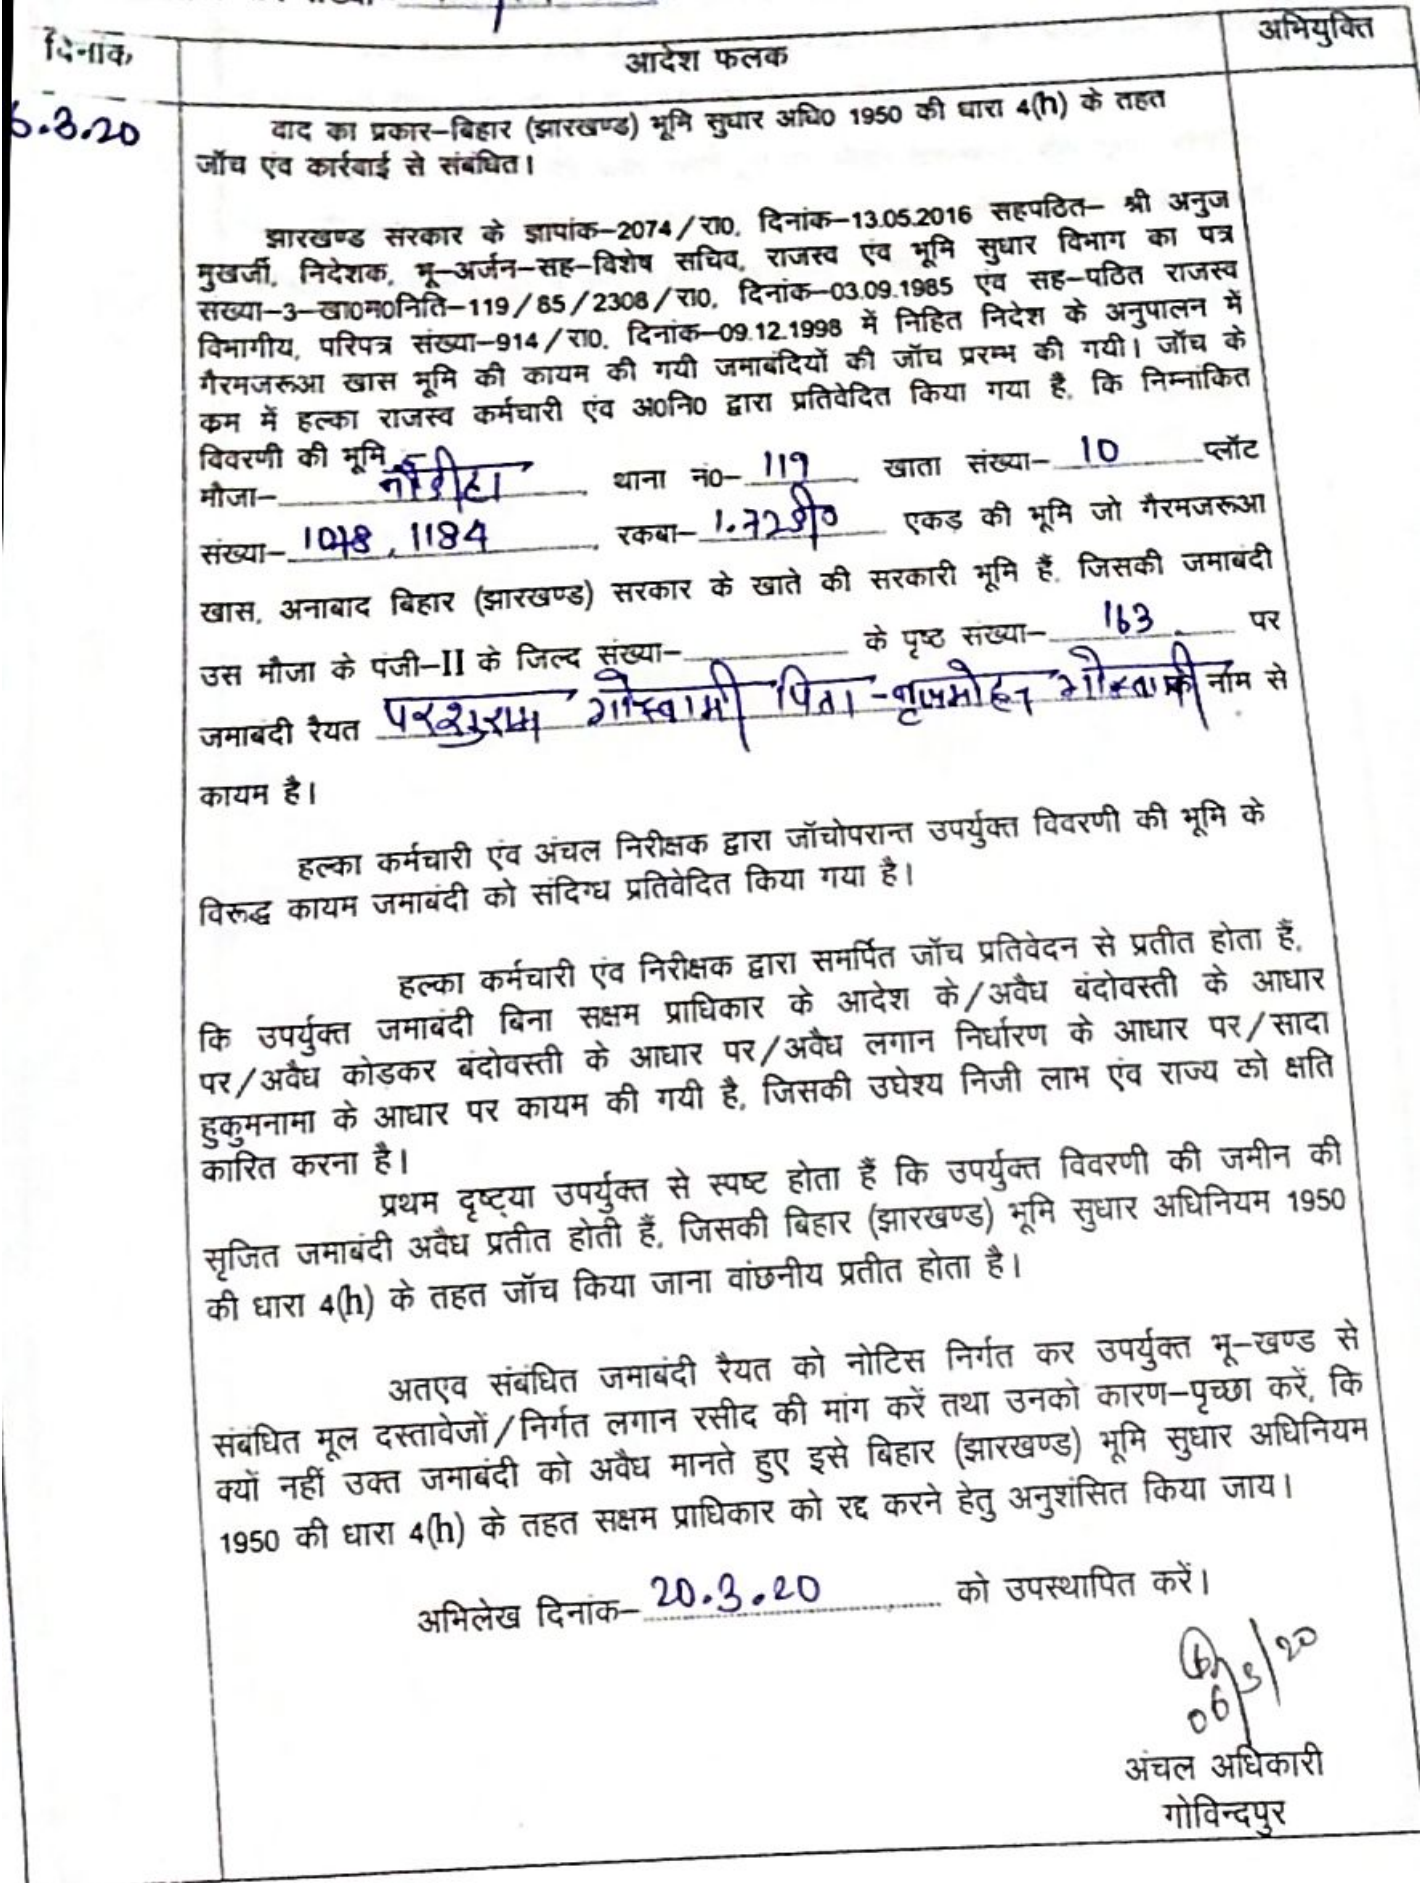 दिनांक
आदेश फलक
अभियुक्ति
6.3.20
वाद का प्रकार–बिहार (झारखण्ड) भूमि सुधार अधि0 1950 की धारा 4(h) के तहत
जॉच एंव कार्रवाई से संबंधित।
झारखण्ड सरकार के ज्ञापांक–2074/रा0, दिनांक–13.05.2016 सहपठित– श्री अनुज
मुखर्जी, निदेशक, भू–अर्जन–सह–विशेष सचिव, राजस्व एंव भूमि सुधार विभाग का पत्र
संख्या–3–खा0म0निति–119/85/2308/रा0, दिनांक–03.09.1985 एंव सह–पठित राजस्व
विभागीय, परिपत्र संख्या–914/रा0, दिनांक–09.12.1998 में निहित निदेश के अनुपालन में
गैरमजरूआ खास भूमि की कायम की गयी जमाबंदियों की जॉच प्ररम्भ की गयी। जॉच के
कम में हल्का राजस्व कर्मचारी एंव अ0नि0 द्वारा प्रतिवेदित किया गया है, कि निम्नांकित
विवरणी की भूमि
मौजा– थाना नं0– 119 खाता संख्या– 10 प्लॉट
संख्या– 1078, 1184 रकबा– 1.72 डी0 एकड़ की भूमि जो गैरमजरूआ
खास, अनाबाद बिहार (झारखण्ड) सरकार के खाते की सरकारी भूमि हैं, जिसकी जमाबंदी
उस मौजा के पंजी–II के जिल्द संख्या– के पृष्ट संख्या– 163 पर
जमाबंदी रैयत परशुराम गोस्वामी पिता – बृजमोहन गोस्वामी के नाम से
कायम है।
हल्का कर्मचारी एंव अंचल निरीक्षक द्वारा जॉचोपरान्त उपर्युक्त विवरणी की भूमि के
विरूद्ध कायम जमाबंदी को संदिग्ध प्रतिवेदित किया गया है।
हल्का कर्मचारी एंव निरीक्षक द्वारा समर्पित जॉच प्रतिवेदन से प्रतीत होता हैं,
कि उपर्युक्त जमाबंदी बिना सक्षम प्राधिकार के आदेश के/अवैध बंदोवस्ती के आधार
पर/अवैध कोड़कर बंदोवस्ती के आधार पर/अवैध लगान निर्धारण के आधार पर/सादा
हुकुमनामा के आधार पर कायम की गयी है, जिसकी उघेश्य निजी लाभ एंव राज्य को क्षति
कारित करना है।
प्रथम दृष्ट्या उपर्युक्त से स्पष्ट होता हैं कि उपर्युक्त विवरणी की जमीन की
सृजित जमाबंदी अवैध प्रतीत होती हैं, जिसकी बिहार (झारखण्ड) भूमि सुधार अधिनियम 1950
की धारा 4(h) के तहत जॉच किया जाना वांछनीय प्रतीत होता है।
अतएव संबंधित जमाबंदी रैयत को नोटिस निर्गत कर उपर्युक्त भू–खण्ड से
संबंधित मूल दस्तावेजों/निर्गत लगान रसीद की मांग करें तथा उनको कारण–पृच्छा करें, कि
क्यों नहीं उक्त जमाबंदी को अवैध मानते हुए इसे बिहार (झारखण्ड) भूमि सुधार अधिनियम
1950 की धारा 4(h) के तहत सक्षम प्राधिकार को रद्द करने हेतु अनुशंसित किया जाय।
अभिलेख दिनांक– 20.3.20 को उपस्थापित करें।
06/3/20
अंचल अधिकारी
गोविन्दपुर